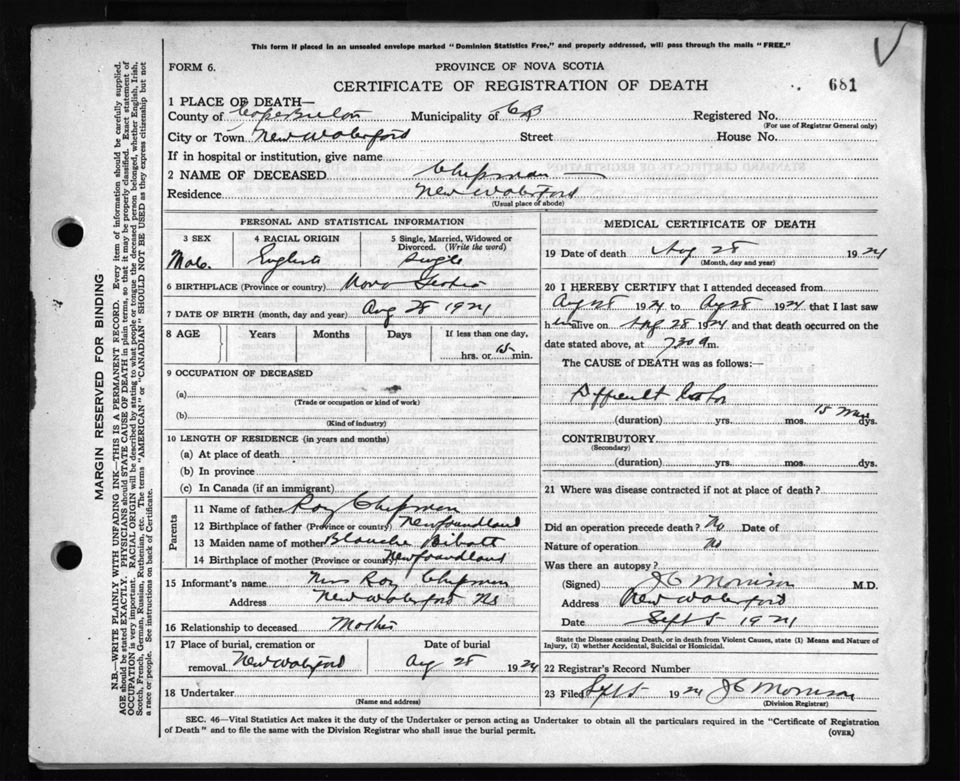 This form if placed in an unsealed envelope marked "Dominion Statistics Free," and properly addressed, will pass through the mails "FREE."
FORM 6.
PROVINCE OF NOVA SCOTIA
CERTIFICATE OF REGISTRATION OF DEATH
681
1 PLACE OF DEATH—
County of Cape Breton Municipality of CB Registered No.
(For use of Registrar General only)
City or Town New Waterford Street House No.
If in hospital or institution, give name
2 NAME OF DECEASED Chipman
Residence New Waterford
(Usual place of abode)
PERSONAL AND STATISTICAL INFORMATION
3 SEX Male.
4 RACIAL ORIGIN English
5 Single, Married, Widowed or Divorced. (Write the word) Single
6 BIRTHPLACE (Province or country) Nova Scotia
7 DATE OF BIRTH (month, day and year) Aug 28 1924
8 AGE Years Months Days If less than one day, hrs. or 15 min.
9 OCCUPATION OF DECEASED
(a)
(Trade or occupation or kind of work)
(b)
(Kind of industry)
10 LENGTH OF RESIDENCE (in years and months)
(a) At place of death
(b) In province
(c) In Canada (if an immigrant)
Parents
11 Name of father Roy Chipman
12 Birthplace of father (Province or country) Newfoundland
13 Maiden name of mother Blanche
14 Birthplace of mother (Province or country) Newfoundland
15 Informant's name Mrs Roy Chipman
Address New Waterford NS
16 Relationship to deceased Mother
17 Place of burial, cremation or removal New Waterford
Date of burial Aug 28 1924
18 Undertaker
(Name and address)
MEDICAL CERTIFICATE OF DEATH
19 Date of death Aug 28 1924
(Month, day and year)
20 I HEREBY CERTIFY that I attended deceased from
Aug 28 1924 to Aug 28 1924 that I last saw
him alive on Aug 28 1924 and that death occurred on the
date stated above, at 7.30 a m.
The CAUSE of DEATH was as follows:—
Difficult
(duration) yrs. mos. 15 Mins dys.
CONTRIBUTORY
(Secondary)
(duration) yrs. mos. dys.
21 Where was disease contracted if not at place of death?
Did an operation precede death? No Date of
Nature of operation No
Was there an autopsy?
(Signed) J C Morrison M.D.
Address New Waterford
Date Sept 5 1924
State the Disease causing Death, or in death from Violent Causes, state (1) Means and Nature of
Injury, (2) whether Accidental, Suicidal or Homicidal.
22 Registrar's Record Number
23 Filed Sept 5 1924 J C Morrison
(Division Registrar)
SEC. 46—Vital Statistics Act makes it the duty of the Undertaker or person acting as Undertaker to obtain all the particulars required in the "Certificate of Registration
of Death" and to file the same with the Division Registrar who shall issue the burial permit.
(OVER)
MARGIN RESERVED FOR BINDING
N.B.—WRITE PLAINLY WITH UNFADING INK—THIS IS A PERMANENT RECORD. Every item of information should be carefully supplied.
AGE should be stated EXACTLY. PHYSICIANS should STATE CAUSE OF DEATH in plain terms, so that it may be properly classified. Exact statement of
OCCUPATION is very important. RACIAL ORIGIN will be described by stating to what people or tongue the deceased person belonged, whether English, Irish,
Scotch, French, German, Russian, Ruthenian, etc. The terms "AMERICAN" or "CANADIAN" SHOULD NOT BE USED as they express citizenship but not
a race or people. See instructions on back of Certificate.